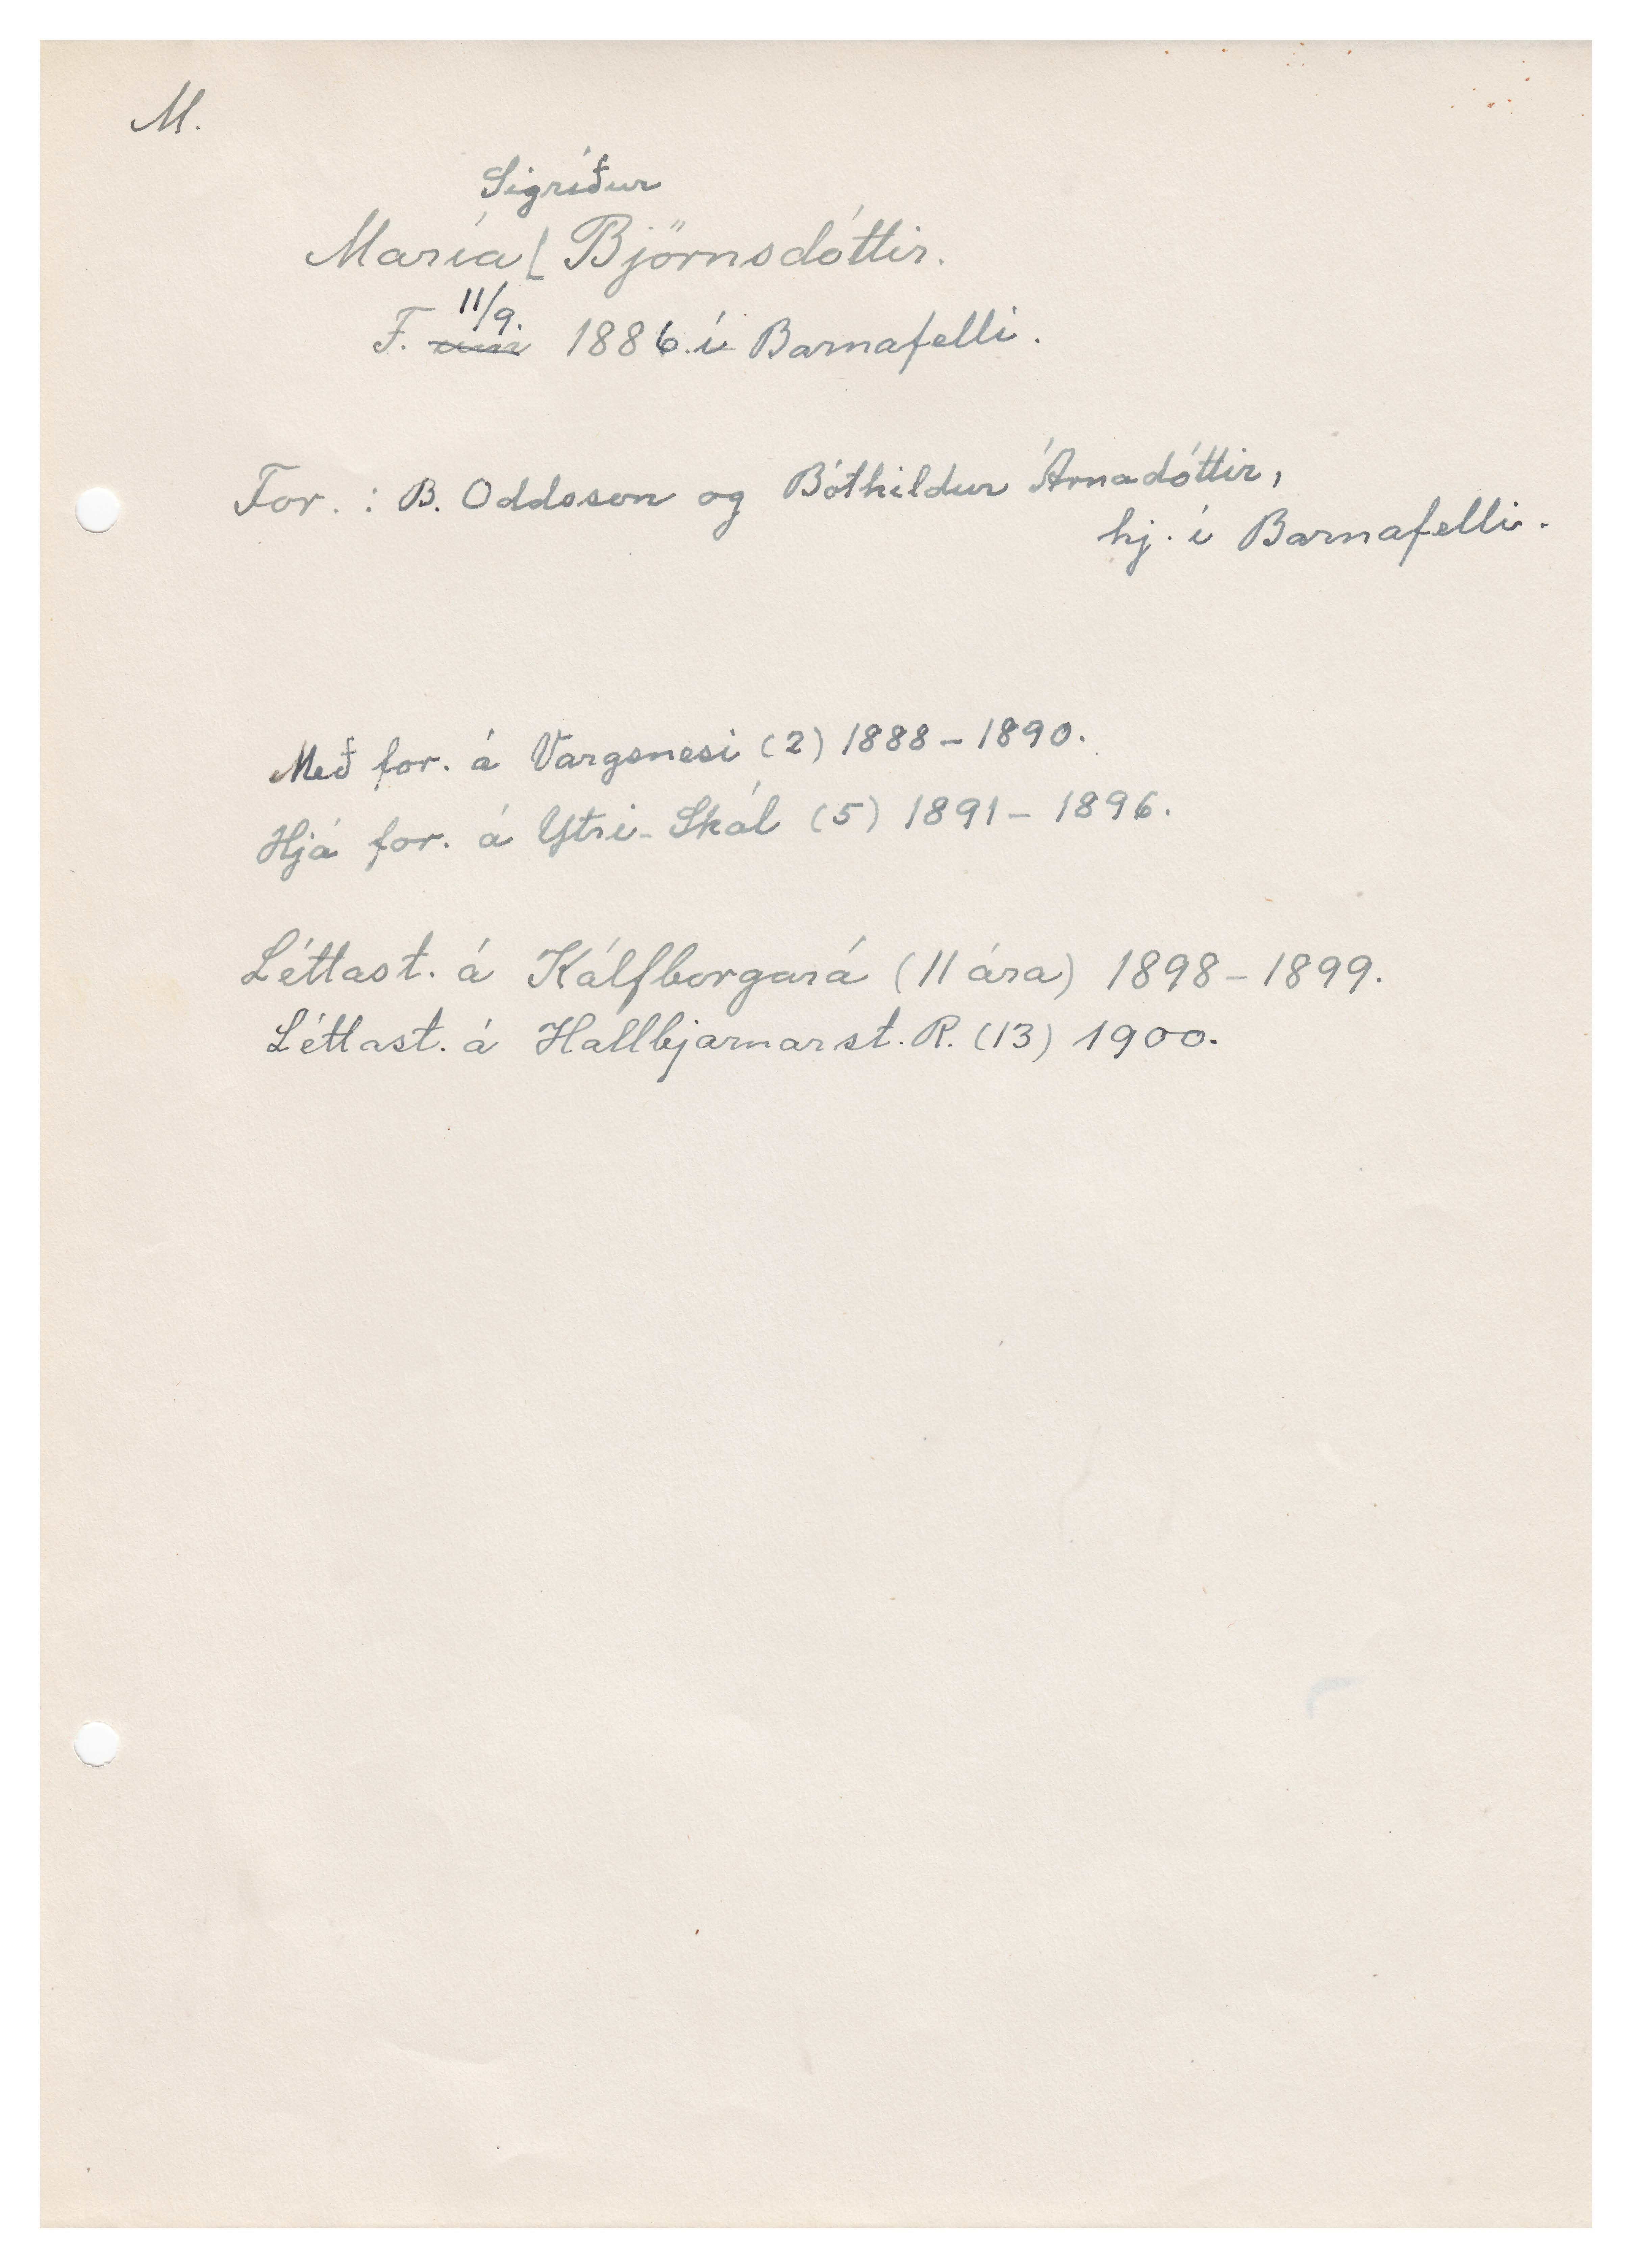 M.
Sigríður
María [ Björnsdóttir.
11/9.
F. um 1886 í Barnafelli.
For. : B. Oddsson og Bóthildur Árnadóttir,
hj. í Barnafelli.
Með for. á Vargsnesi (2) 1888 - 1890.
Hjá for. á Ytri-Skál (5) 1891 - 1896.
Léttast. á Kálfborgará (11 ára) 1898 - 1899.
Léttast. á Hallbjarnarst. R. (13) 1900.